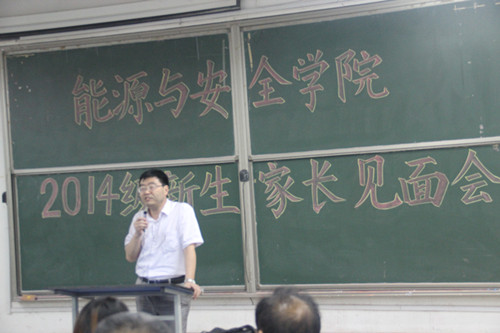 能源与安全学院
2014级新生家长见面会